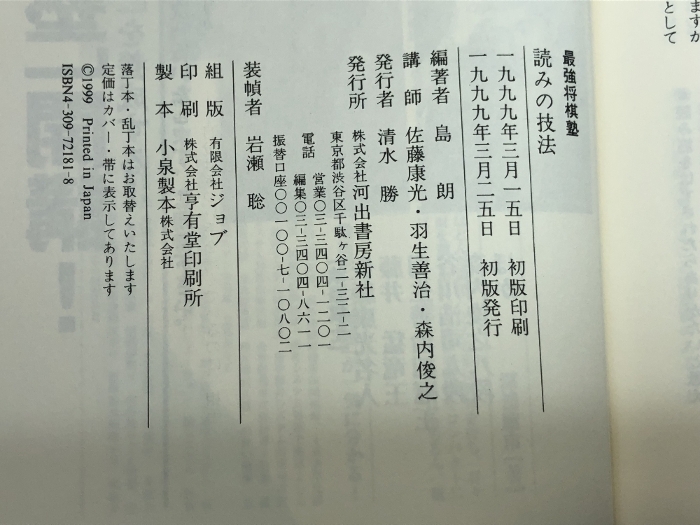 ますか
として
最強将棋塾
読みの技法
一九九九年三月一五日　初版印刷
一九九九年三月二五日　初版発行
編著者　島　朗
講　師　佐藤康光・羽生善治・森内俊之
発行者　清水　勝
発行所　株式会社河出書房新社
東京都渋谷区千駄ヶ谷二-三二-二
電話　営業〇三-三四〇四-一二〇一
編集〇三-三四〇四-八六一一
振替口座〇〇一〇〇-七-一〇八〇二
装幀者　岩瀬　聡
組　版　有限会社ジョブ
印　刷　株式会社亨有堂印刷所
製　本　小泉製本株式会社
落丁本・乱丁本はお取替えいたします
定価はカバー・帯に表示してあります
©1999　Printed in Japan
ISBN4-309-72181-8